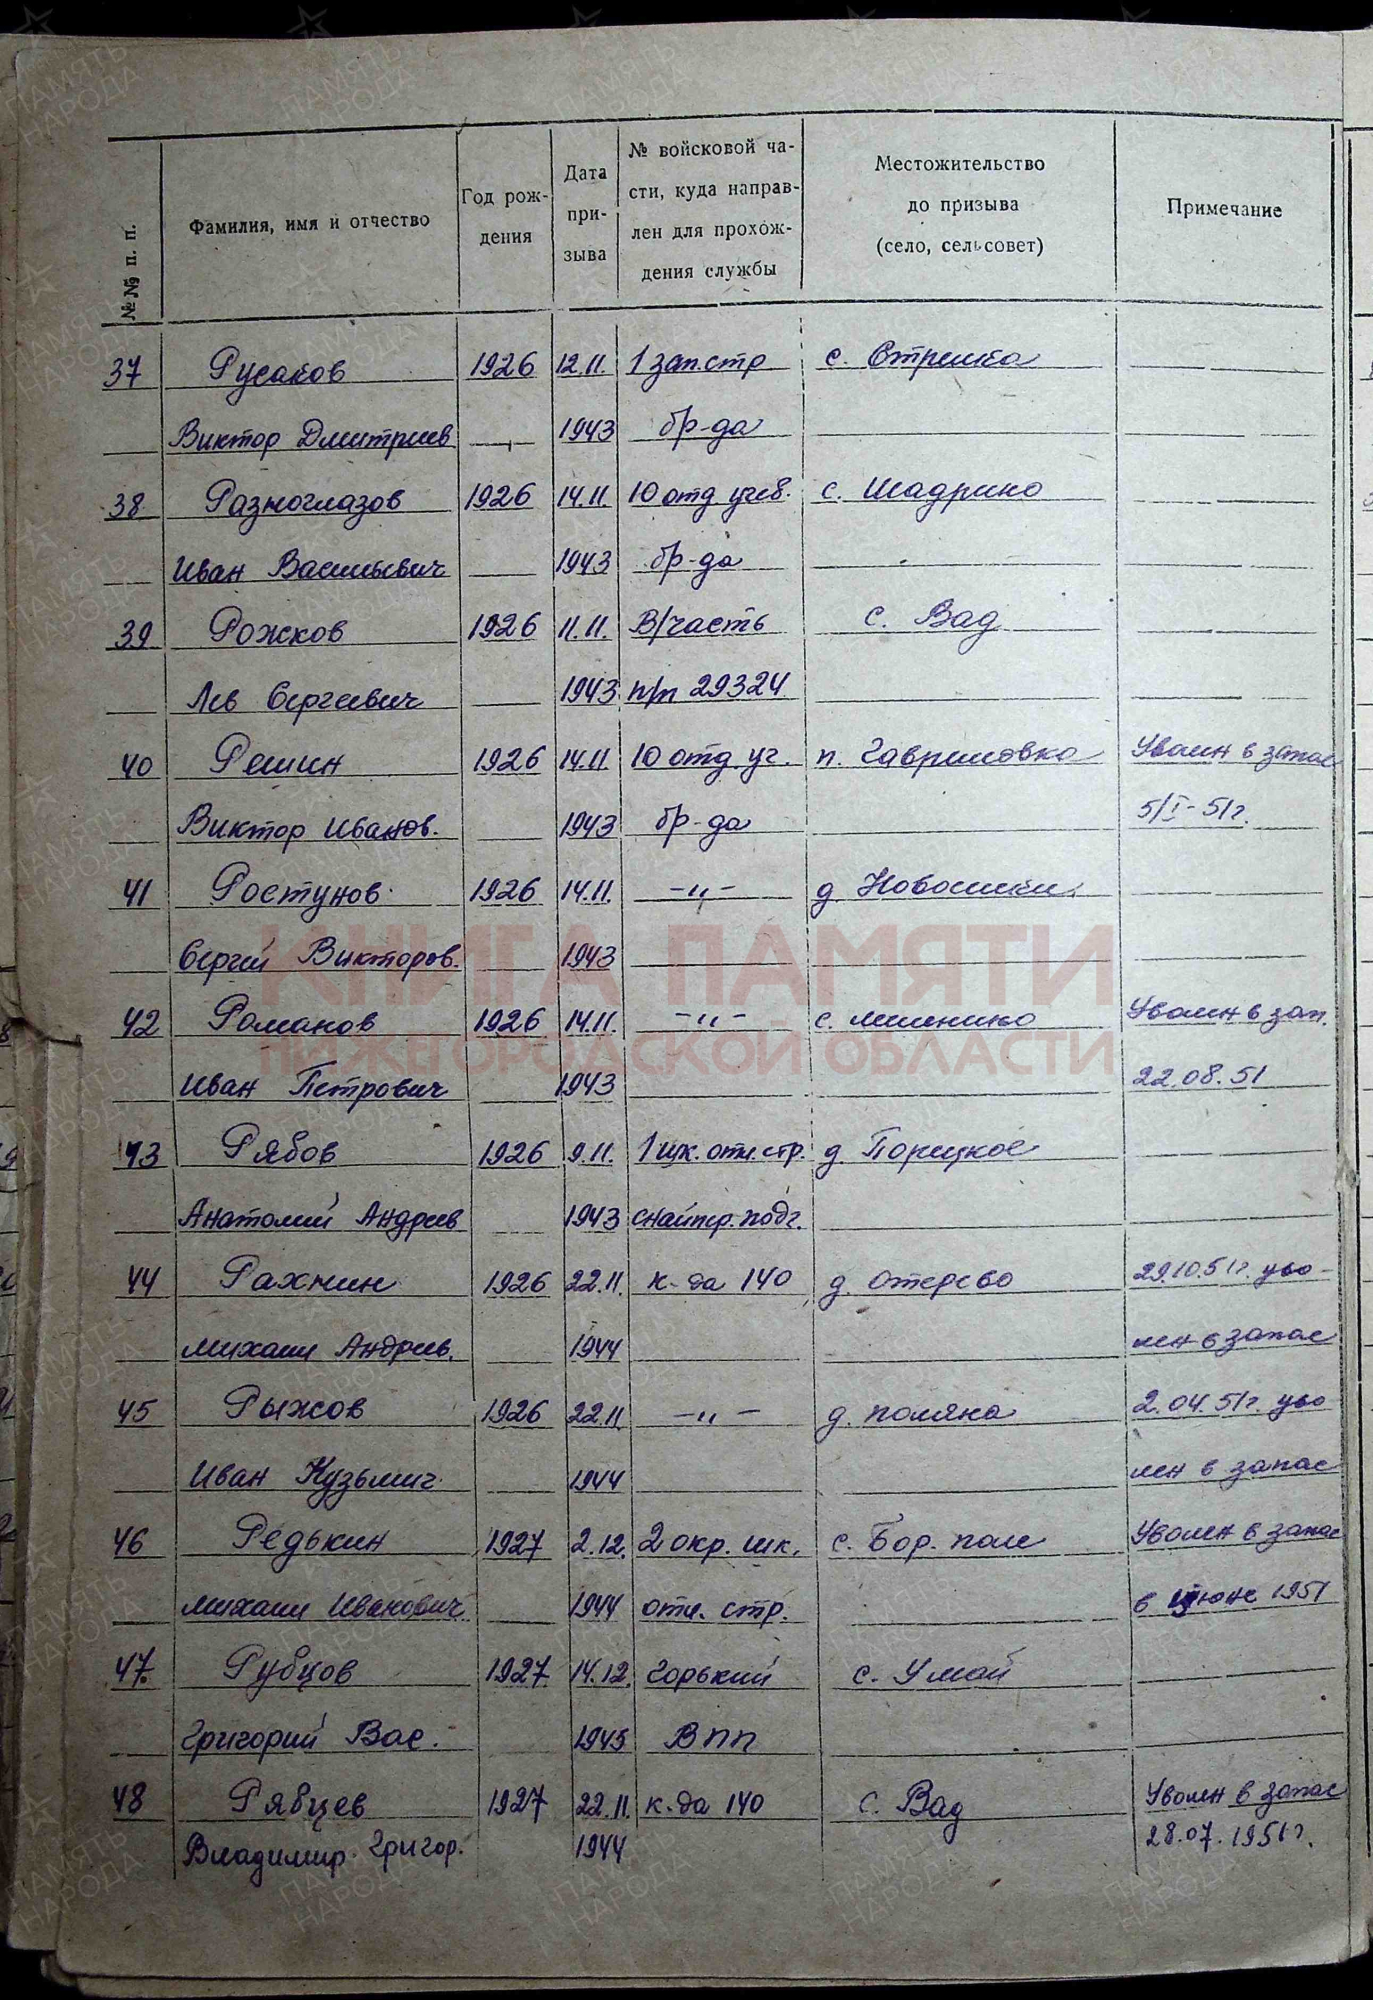 №№ п. п. Фамилия, имя и отчество Год рож- дения Дата при- зыва № войсковой ча- сти, куда направ- лен для прохож- дения службы Местожительство до призыва (село, сельсовет) Примечание
37 Русаков 1926 12.11. 1 зап. стр с. Стрелка
Виктор Дмитриев 1943 бр-да
38 Разноглазов 1926 14.11. 10 отд. учеб. с. Шадрино
Иван Васильевич 1943 бр-да
39 Рожков 1926 11.11. В/часть с. Вад
Лев Сергеевич 1943 п/п 29324
40 Решин 1926 14.11 10 отд. уч. п. Гавриловка Уволен в запас
Виктор Иванов. 1943 бр-да 5/I-51г.
41 Ростунов 1926 14.11. -"- д.
Сергей Викторов. 1943
42 Романов 1926 14.11. -"- с. Уволен в зап.
Иван Петрович 1943 22.08.51
КНИГА ПАМЯТИ
НИЖЕГОРОДСКОЙ ОБЛАСТИ
43 Рябов 1926 9.11. 1 шк. отл. стр. д. Порецкое
Анатолий Андреев 1943 снайпер. подг.
44 Рахнин 1926 22.11. к-да 140 д. Отерево 29.10.51г. уво-
Михаил Андреев. 1944 лен в запас
45 Рыжов 1926 22.11 -"- д. Поляна 2.04.51г. уво
Иван Кузьмич. 1944 лен в запас
46 Редькин 1927 2.12. 2 окр. шк. с. Бор. поле Уволен в запас
Михаил Иванович 1944 отл. стр. в июне 1951
47. Рубцов 1927 14.12. Горький с. Умай
Григорий Вас. 1945 ВПП
48 Рябцев 1927 22.11. к-да 140 с. Вад Уволен в запас
Владимир Григор. 1944 28.07.1951г.
ПАМЯТЬ НАРОДА